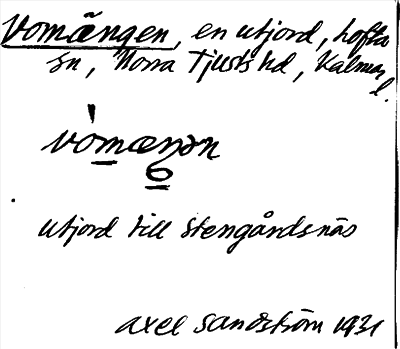 Vomängen, en utjord, Lofta
sn, Norra Tjusts hd, Kalmar
l.
vòmæŋən
utjord till Stengårdsnäs
Axel Sandström 1931